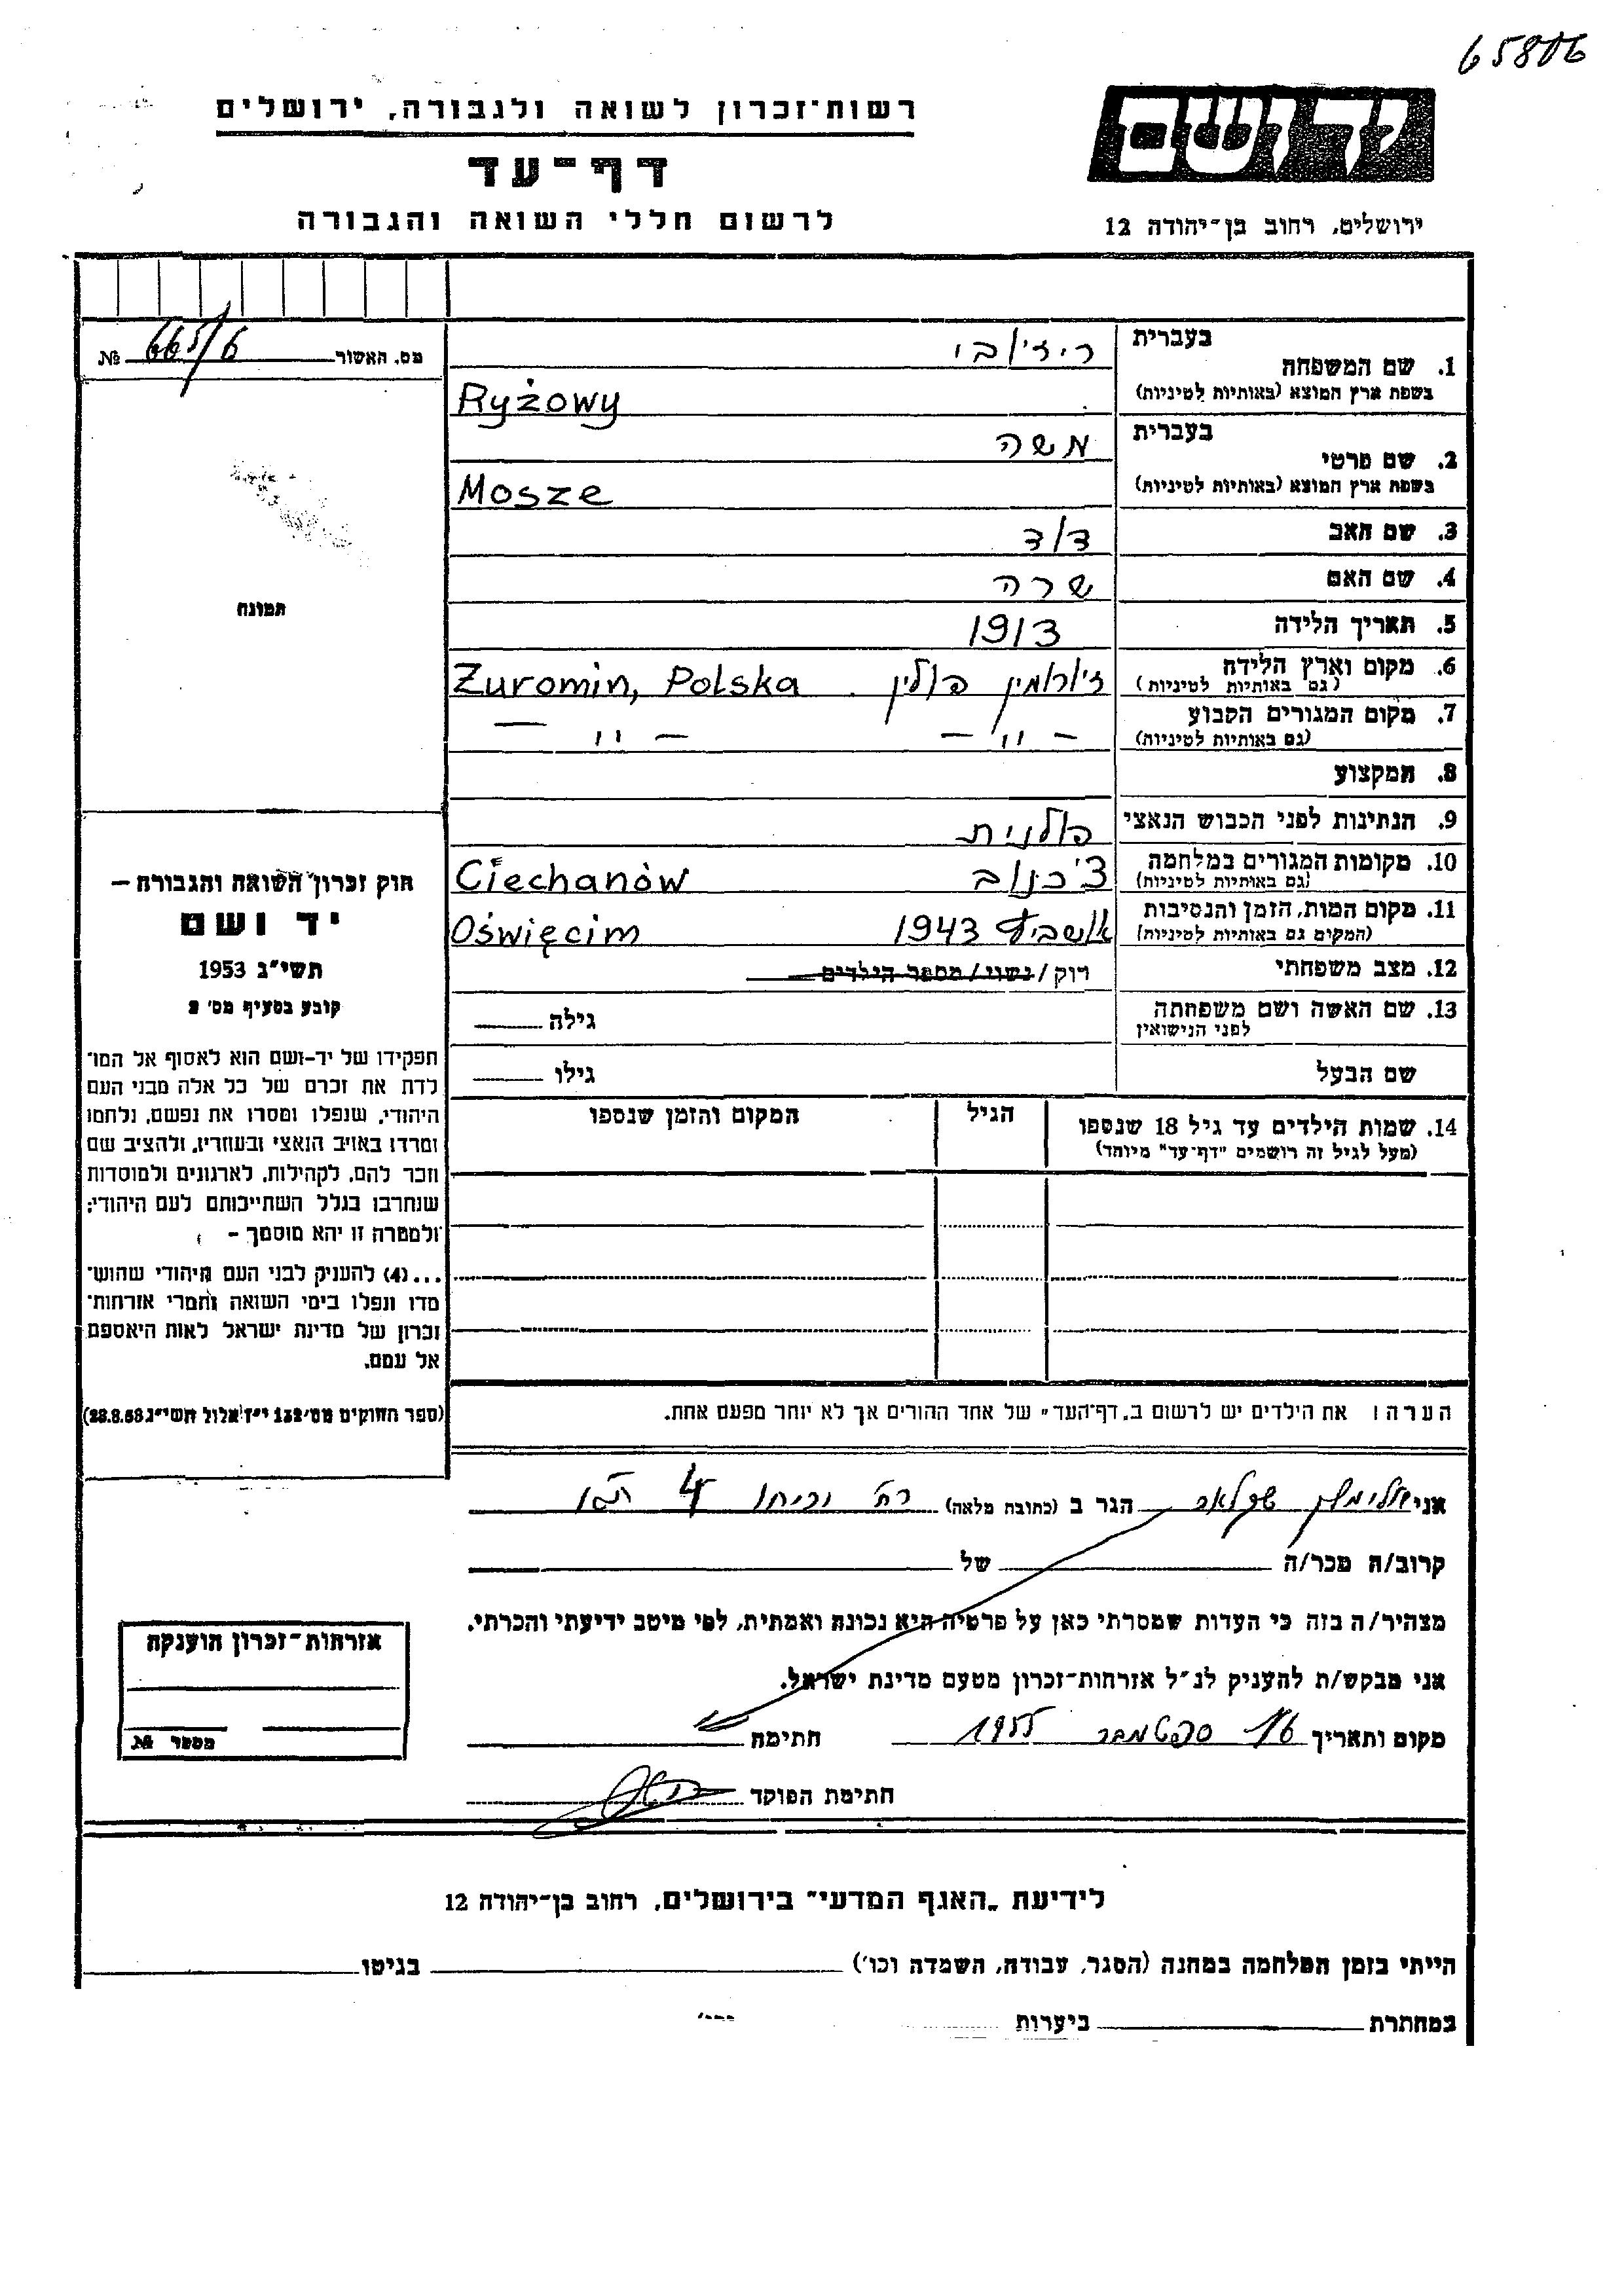 65806
רשות־זכרון לשואה ולגבורה, ירושלים
דף־עד
לרשום חללי השואה והגבורה
יד ושם
ירושלים, רחוב בן־יהודה 12
מס. האשור 665/6 №
תמונה
בעברית ריז'ובי
1. שם המשפחה
בשפת ארץ המוצא (באותיות לטיניות) Ryżowy
בעברית משה
2. שם פרטי
בשפת ארץ המוצא (באותיות לטיניות) Mosze
3. שם האב דוד
4. שם האם שרה
5. תאריך הלידה 1913
6. מקום וארץ הלידה ז'ורומין פולין Żuromin, Polska
(גם באותיות לטיניות)
7. מקום המגורים הקבוע — " — — " —
(גם באותיות לטיניות)
8. המקצוע
9. הנתינות לפני הכבוש הנאצי פולנית
10. מקומות המגורים במלחמה צ'כנוב Ciechanów
(גם באותיות לטיניות)
11. מקום המות, הזמן והנסיבות אושביץ 1943 Oświęcim
(המקום גם באותיות לטיניות)
12. מצב משפחתי רוק / נשוי / מספר הילדים
13. שם האשה ושם משפחתה גילה
לפני הנישואין
שם הבעל גילו
14. שמות הילדים עד גיל 18 שנספו הגיל המקום והזמן שנספו
(מעל לגיל זה רושמים "דף־עד" מיוחד)
הערה: את הילדים יש לרשום ב„דף־העד" של אחד ההורים אך לא יותר מפעם אחת.
חוק זכרון השואה והגבורה —
יד ושם
תשי"ג 1953
קובע בסעיף מס' 2
תפקידו של יד-ושם הוא לאסוף אל המו־
לדת את זכרם של כל אלה מבני העם
היהודי, שנפלו ומסרו את נפשם, נלחמו
ומרדו באויב הנאצי ובעוזריו, ולהציב שם
וזכר להם, לקהילות, לארגונים ולמוסדות
שנחרבו בגלל השתייכותם לעם היהודי;
ולמטרה זו יהא מוסמך -
...(4) להעניק לבני העם היהודי שהוש־
מדו ונפלו בימי השואה והמרי אזרחות־
זכרון של מדינת ישראל לאות היאספם
אל עמם.
(ספר החוקים מס' 132 י"ז אלול תשי"ג 28.8.53)
אני הגר ב (כתובת מלאה) רח' 4
קרוב/ה מכר/ה של
מצהיר/ה בזה כי העדות שמסרתי כאן על פרטיה היא נכונה ואמתית, לפי מיטב ידיעתי והכרתי.
אני מבקש/ת להעניק לנ"ל אזרחות־זכרון מטעם מדינת ישראל.
מקום ותאריך 16 ספטמבר 1955 חתימה
חתימת הפוקד
אזרחות־זכרון הוענקה
מספר №
לידיעת „האגף המדעי" בירושלים, רחוב בן־יהודה 12
הייתי בזמן המלחמה במחנה (הסגר, עבודה, השמדה וכו') בגיטו
במחתרת ביערות